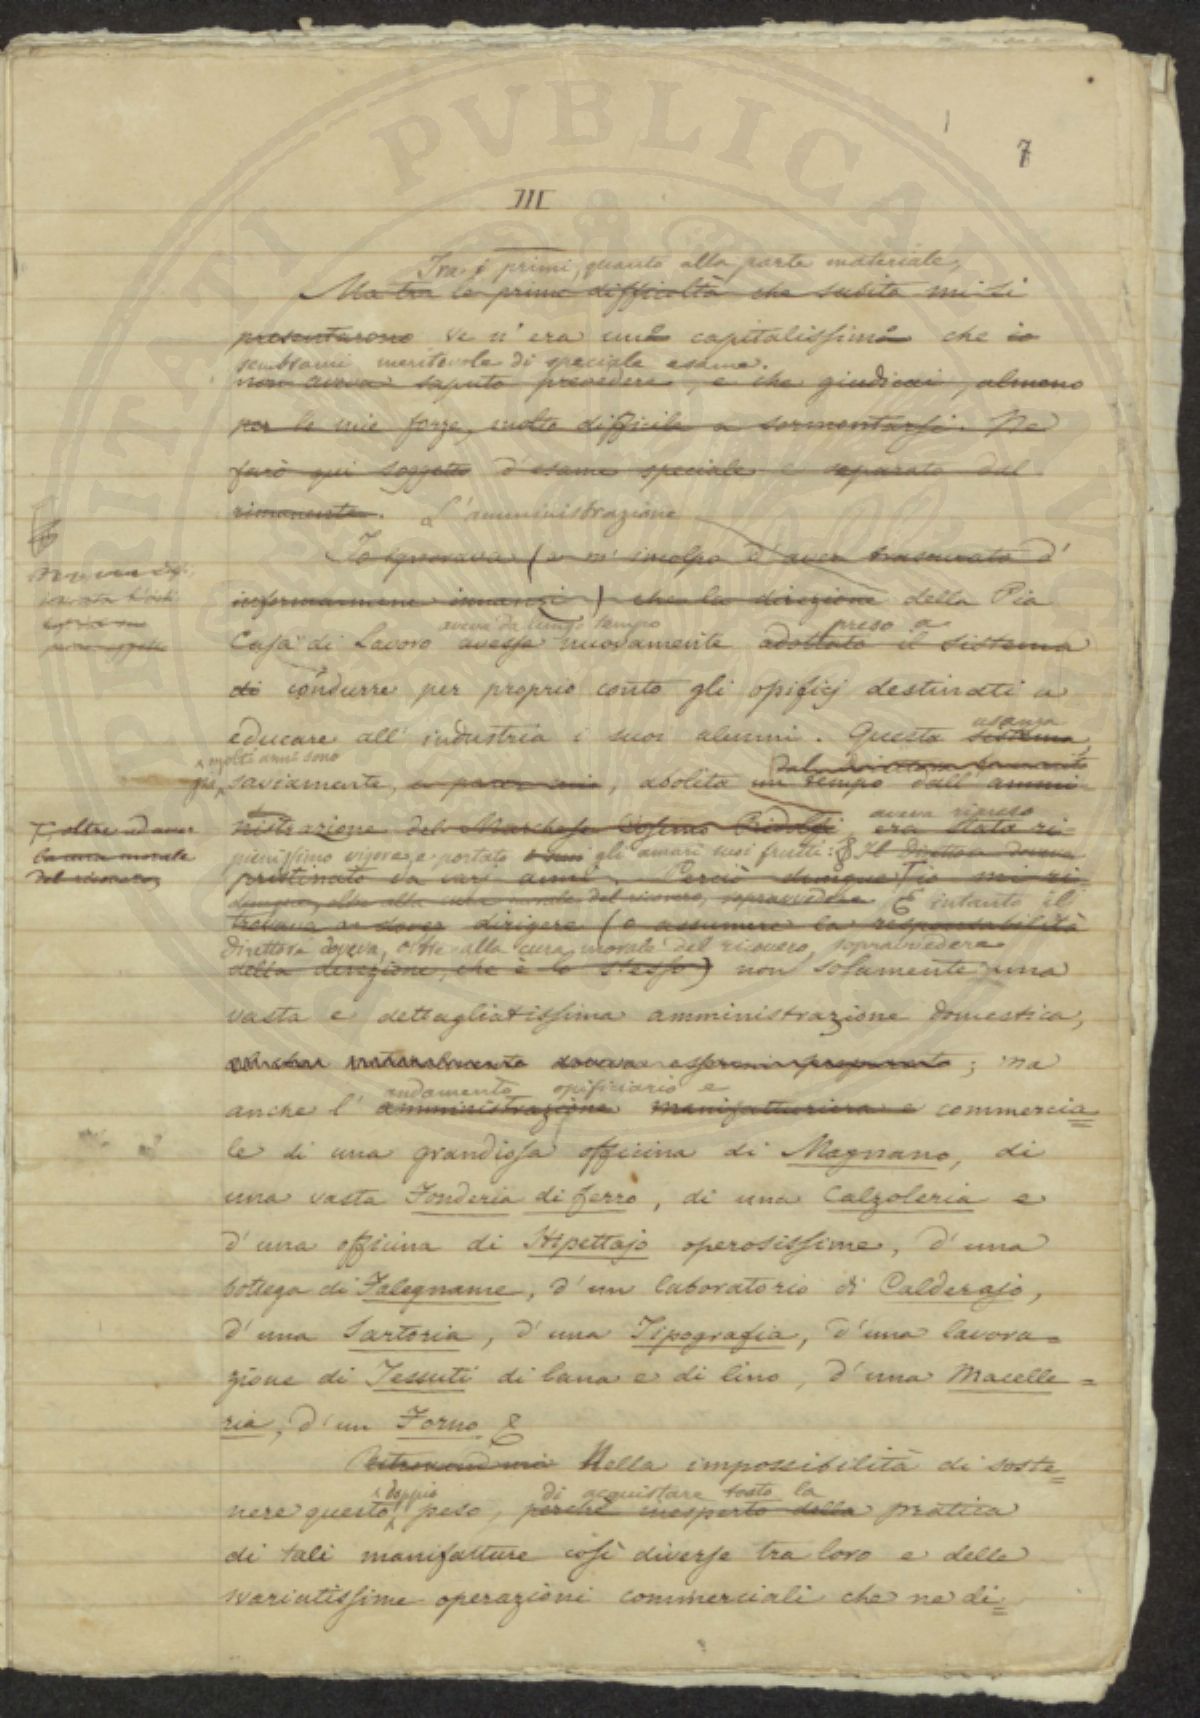 7
III
Tra i primi, quanto alla parte materiale,
Ma tra le prime difficoltà che subito mi si
presentarono ve n'era uno capitalissimo che io
sembrami meritevole di speciale esame.
non aveva saputo prevedere, e che giudicai, almeno
per le mie forze, molto difficile a sormontarsi. Ne
farò qui soggetto d'esame speciale e separato dal
rimanente. L'amministrazione
Io ignorava (e m'incolpo d'aver trascurato d'
informarmene innanzi) che la direzione della Pia
aveva da lungo tempo preso a
Casa di Lavoro avesse nuovamente adottato il sistema
di condurre per proprio conto gli opificj destinati a
usanza
educare all'industria i suoi alunni. Questo sistema,
molti anni sono
saviamente, a parer mio, abolita un tempo dall'ammi-
aveva ripreso
nistrazione del Marchese Cosimo Ridolfi era stata ri-
T, oltre ad aver
la cura morale
del ricovero,
pienissimo vigore, e portato gli amari suoi frutti: Il Direttore doveva
pristinato da varj anni. Perciò dunque T io mi ri-
dunque, oltre alla cura morale del ricovero, sopravvedere E intanto il
trovava a dover dirigere (o assumere la responsabilità
Direttore doveva, oltre alla cura morale del ricovero, sopravvedere
della direzione, che è lo stesso) non solamente una
vasta e dettagliatissima amministrazione domestica,
naturalmente doveva preparato; ma
andamento opificiario e
anche l'amministrazione manifatturiera e commercia=
le di una grandiosa officina di Magnano, di
una vasta Fonderia di ferro, di una Calzoleria e
d'una officina di Stipettajo operosissime, d'una
bottega di Falegname, d'un laboratorio di Calderajo,
d'una Sartoria, d'una Tipografia, d'una lavora=
zione di Tessuti di lana e di lino, d'una Macelle=
ria, d'un Forno &
Ritrovandomi Nella impossibilità di soste=
doppio di acquistare tosto la
nere questo peso, perchè inesperto della pratica
di tali manifatture così diverse tra loro e delle
svariatissime operazioni commerciali che ne di=